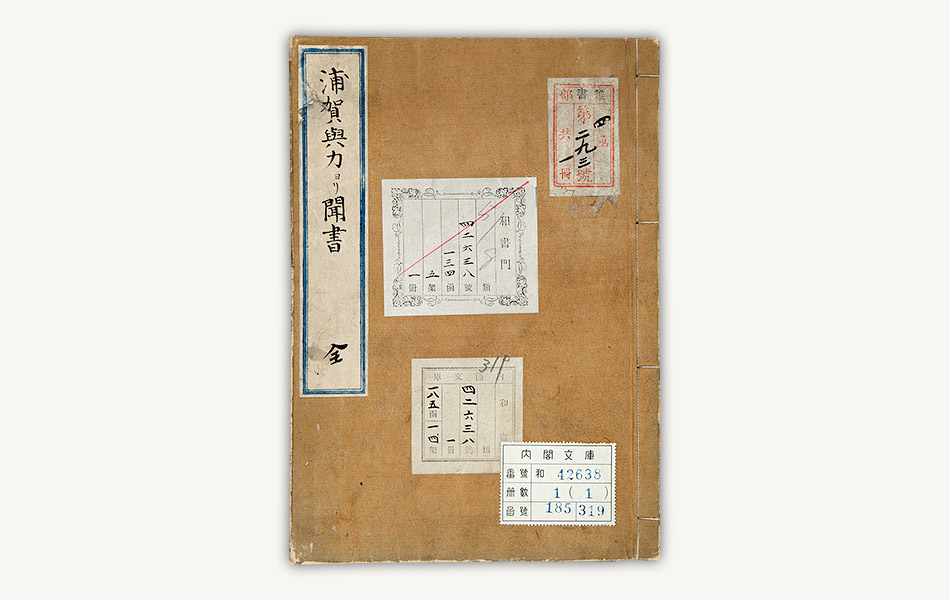 浦賀與力ヨリ聞書
全
書
部
第四
二九三號
共一冊
和書門
類
四二六三八號
一三四函
五架
一冊
319
閣文庫
和
四二六三八
一冊
一八五函
一四架
內閣文庫
番號 和 42638
冊數 1(1)
函號 185 319